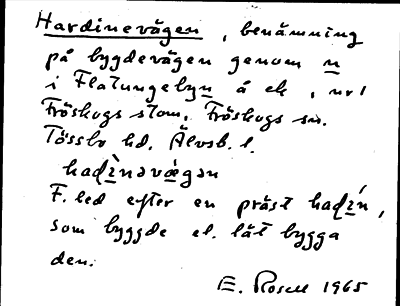 Hardinevägen, benämning
på bygdevägen genom n
i Flatungebyn å ek, nr 1
Fröskogs stom, Fröskogs sn.
Tössbo hd. Älvsb. l.
hadìnəvǽgən
F. led efter en präst hadín,
som byggde el. lät bygga
den.
E. Rosell 1965